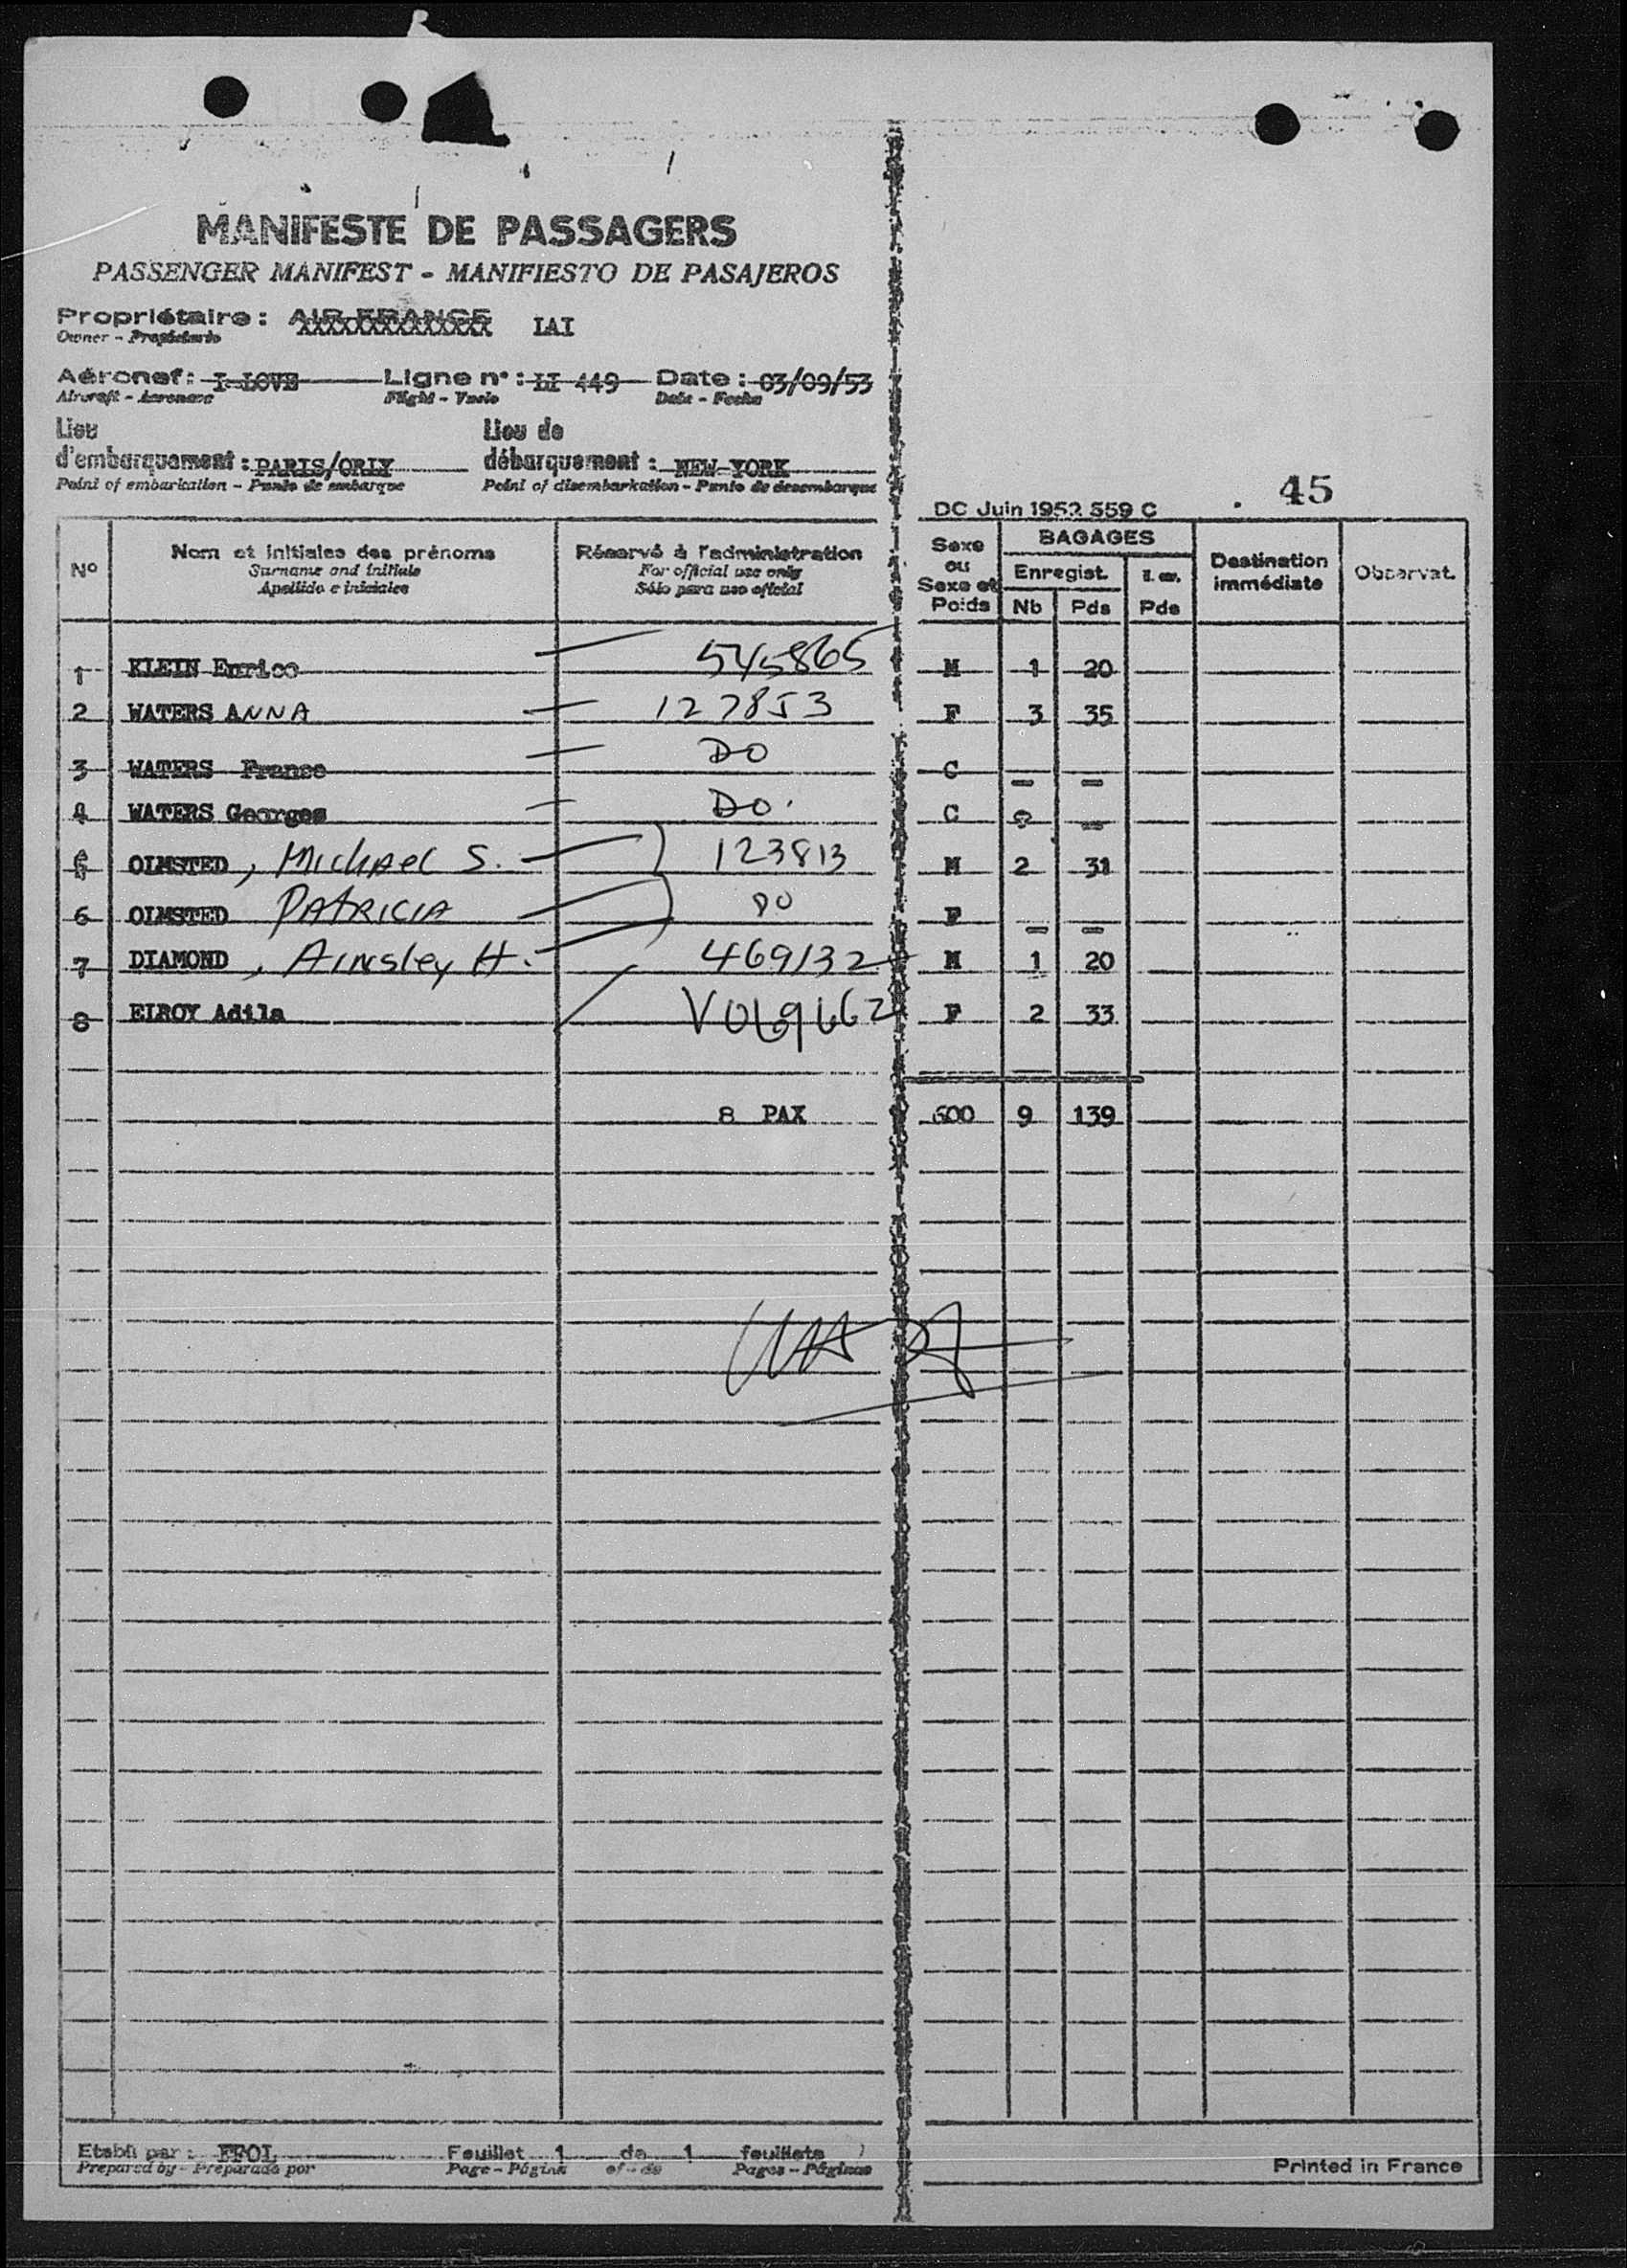 MANIFESTE DE PASSAGERS
PASSENGER MANIFEST - MANIFIESTO DE PASAJEROS
Propriétaire: AIR FRANCE LAI
Owner - Propietario
Aéronef: I-LOVE Ligne n°: LI 449 Date: 03/09/53
Aircraft - Aeronave Flight - Vuelo Date - Fecha
Lieu Lieu de
d'embarquement: PARIS/ORLY débarquement: NEW-YORK
Point of embarkation - Punto de embarque Point of disembarkation - Punto de desembarque
45
DC Juin 1952 559 C
N° Nom et initiales des prénoms Réservé à l'administration Sexe ou Sexe et Poids BAGAGES Destination immédiate Observat.
Surname and initials For official use only Enregist.
Apellido e iniciales Sólo para uso oficial Nb Pds Pds
1 KLEIN Enrico 545865 M 1 20
2 WATERS ANNA 127853 F 3 35
3 WATERS France DO C - -
4 WATERS Georges DO. C - -
5 OLMSTED, Michael S. 123813 M 2 31
6 OLMSTED PATRICIA DO F - -
7 DIAMOND, Ainsley H. 469132 M 1 20
8 ELROY Adila F 2 33
8 PAX 600 9 139
Etabli par: EFOL Feuillet 1 de 1 feuillets
Prepared by - Preparado por Page - Página of - de Pages - Páginas
Printed in France